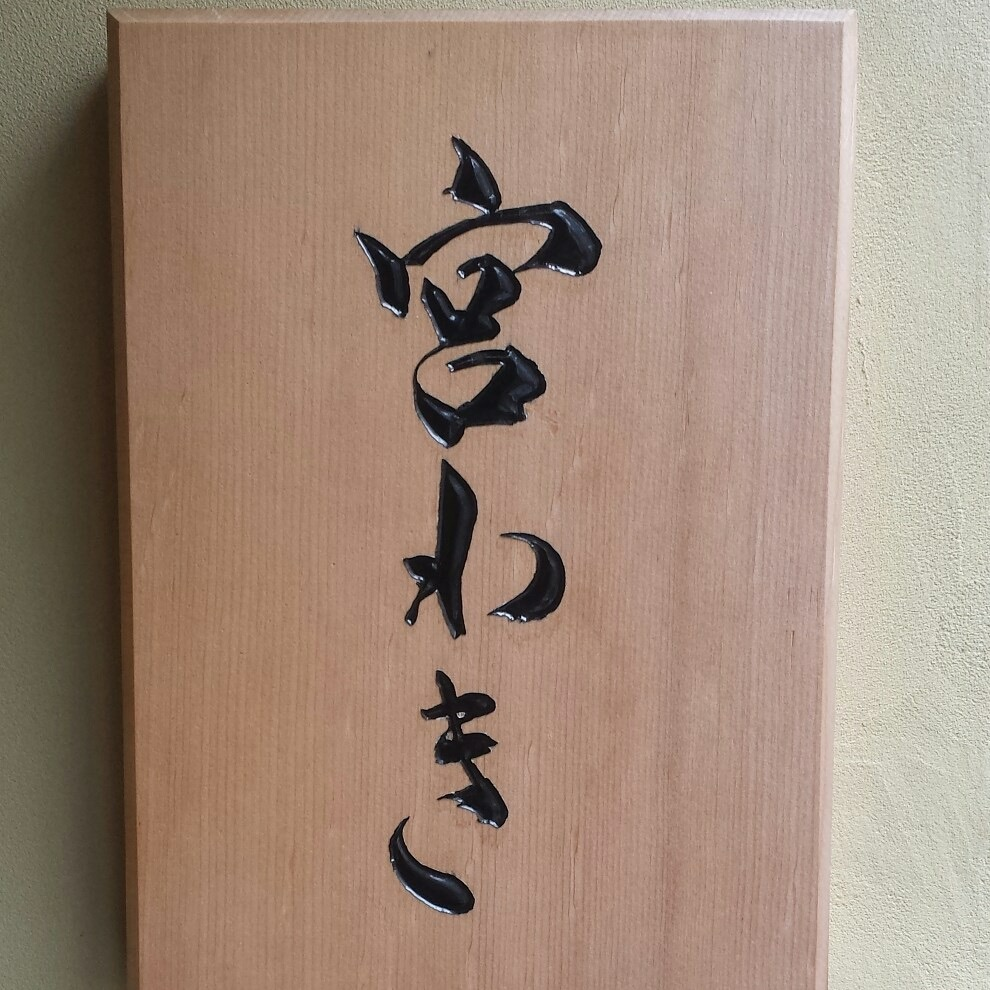 宮わき